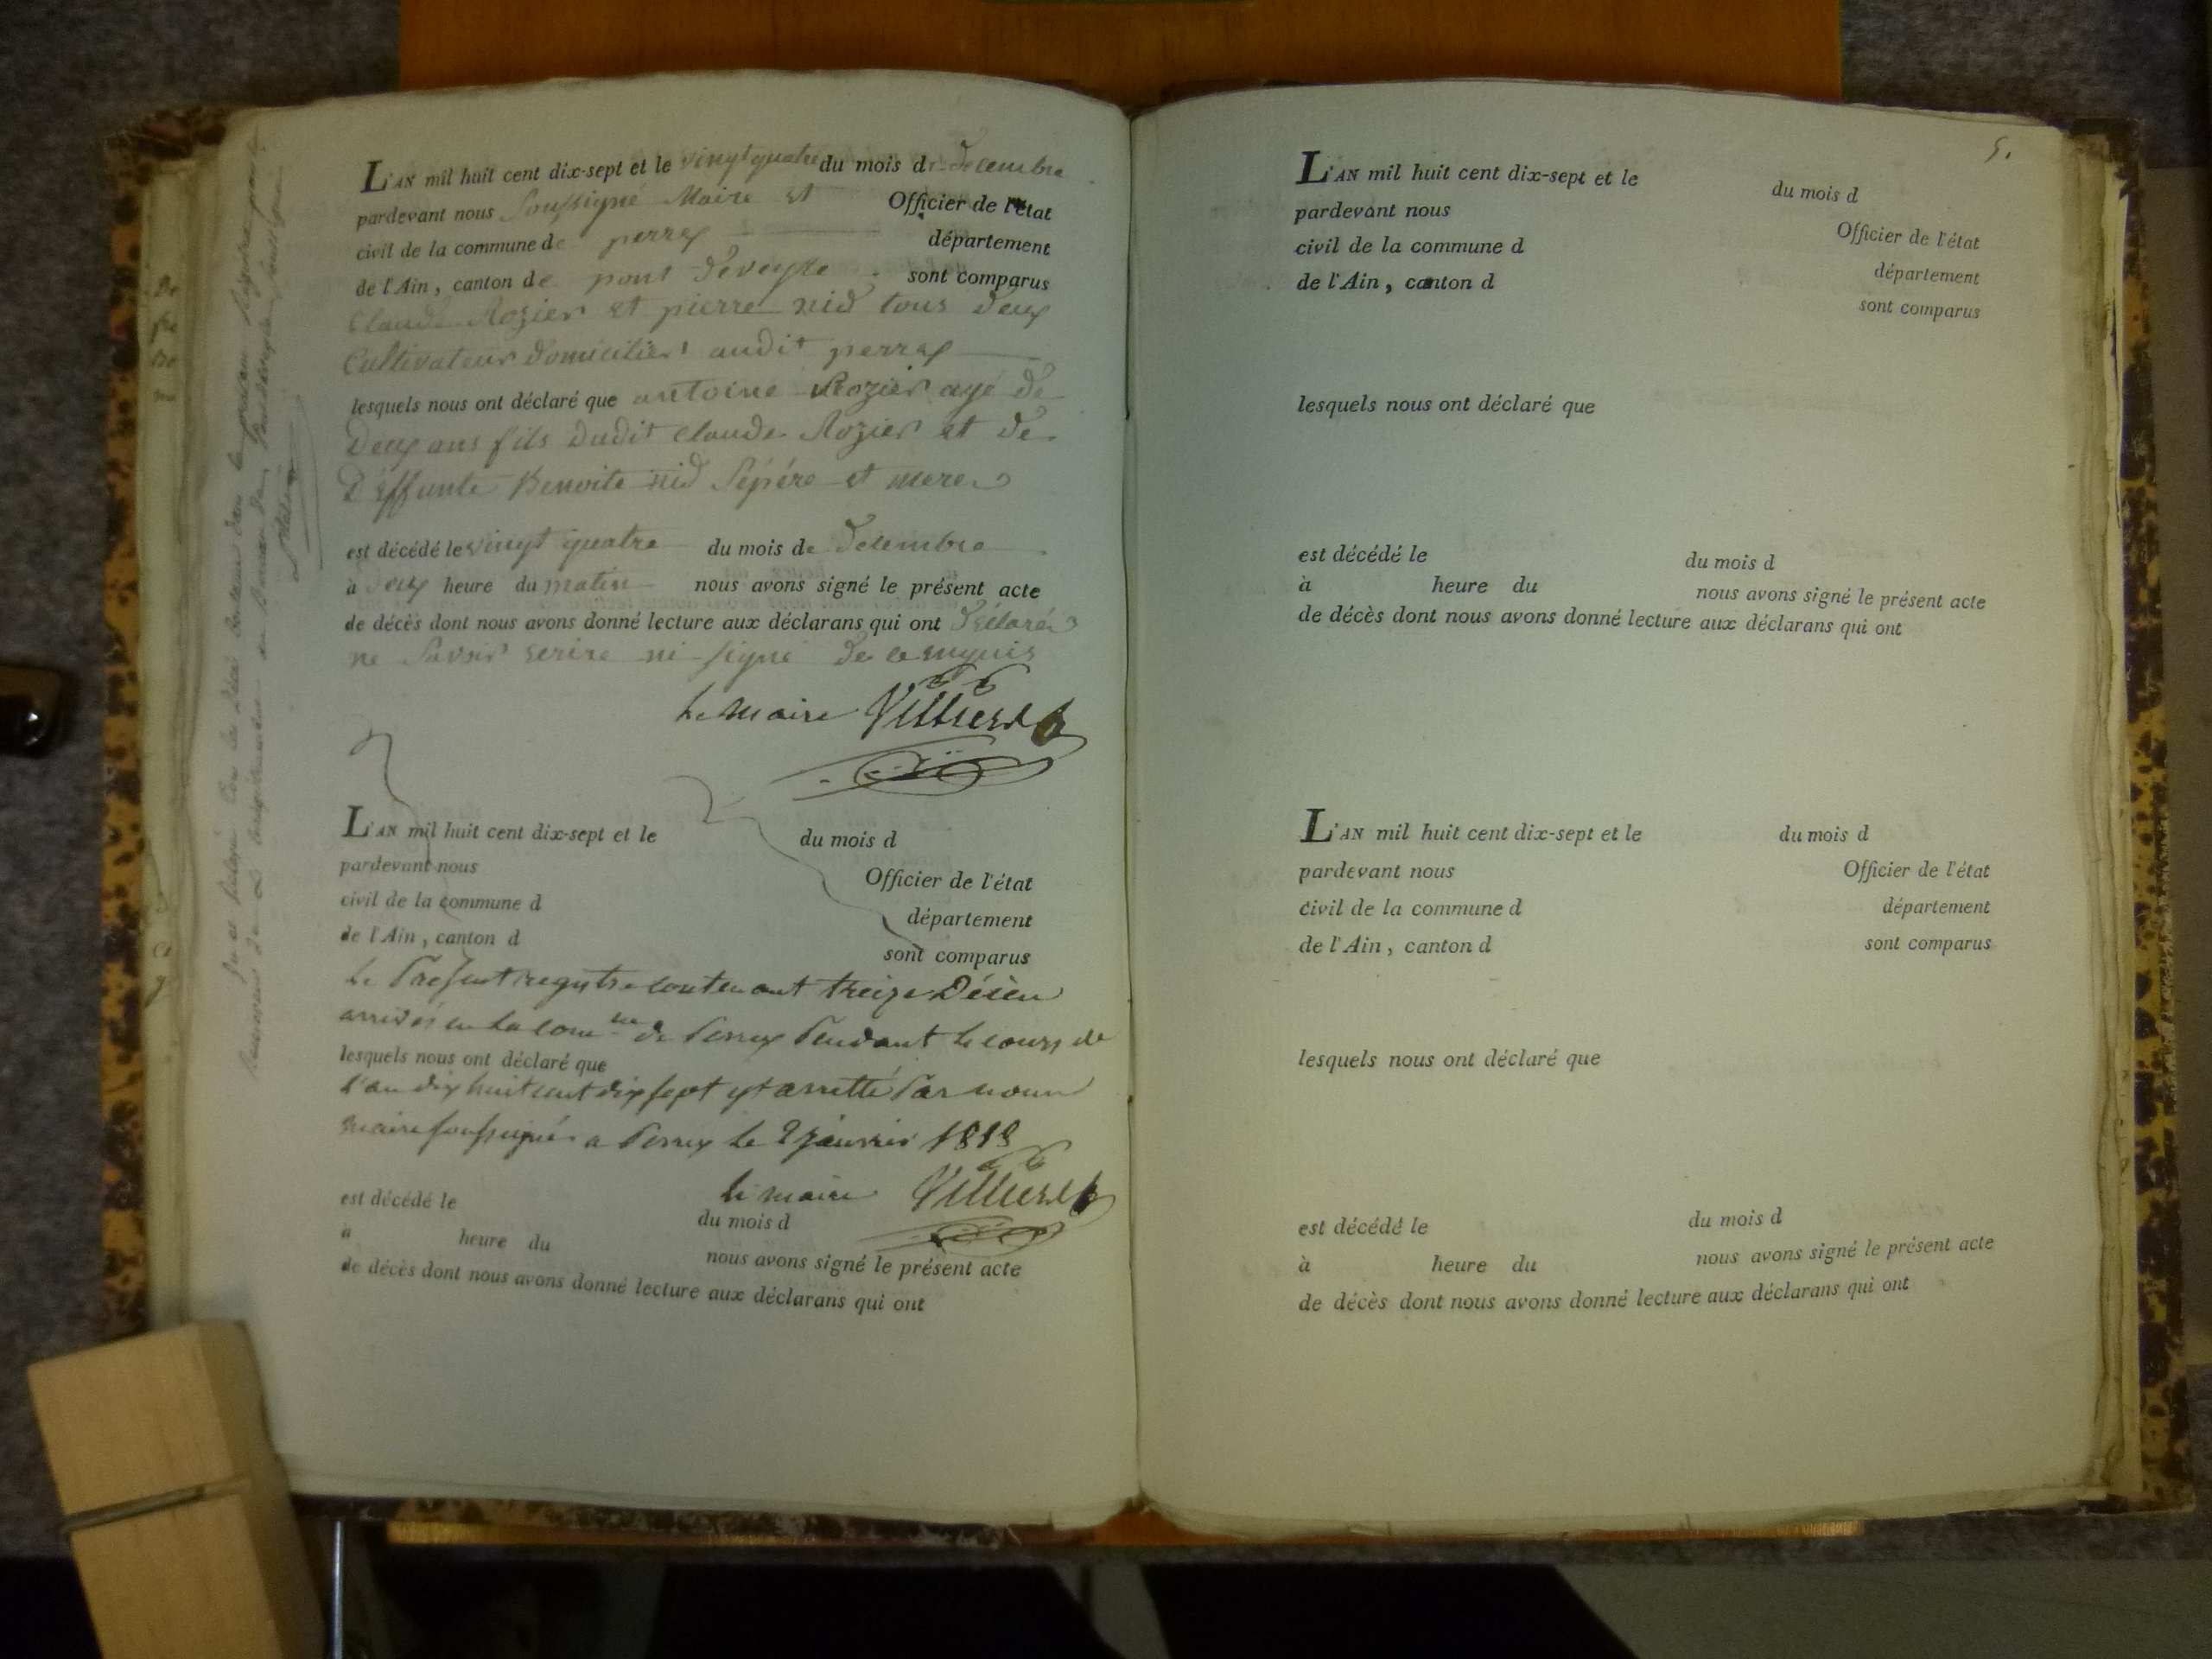 L'AN mil huit cent dix-sept et le vingt quatre du mois de Decembre
pardevant nous Soussigné Maire et Officier de l'état
civil de la commune de perrex département
de l'Ain, canton de pont deveyle sont comparus
Claude Rozier et pierre nid tous deux
Cultivateur domicilier audit perrex
lesquels nous ont déclaré que antoine Rozier agé de
Deux ans fils dudit Claude Rozier et de
Deffunte Benoite nid Sépére et mere
est décédé le vingt quatre du mois de Decembre
à deux heure du matin nous avons signé le présent acte
de décès dont nous avons donné lecture aux déclarans qui ont
ne Savoir écrire ni signé de ce enquis
Le Maire
L'AN mil huit cent dix-sept et le du mois d
pardevant nous Officier de l'état
civil de la commune d département
de l'Ain, canton d sont comparus
Le Present registre contenant treize Décèu
arrivés en la comne de Perrex Pendant le cours de
lesquels nous ont déclaré que
l'an dix huit cent dix sept et arretté Par nous
maire soussigné a Perrex le janvier 1818
le maire
est décédé le du mois d
à heure du nous avons signé le présent acte
de décès dont nous avons donné lecture aux déclarans qui ont
5.
L'AN mil huit cent dix-sept et le du mois d
pardevant nous Officier de l'état
civil de la commune d département
de l'Ain, canton d sont comparus
lesquels nous ont déclaré que
est décédé le du mois d
à heure du nous avons signé le présent acte
de décès dont nous avons donné lecture aux déclarans qui ont
L'AN mil huit cent dix-sept et le du mois d
pardevant nous Officier de l'état
civil de la commune d département
de l'Ain, canton d sont comparus
lesquels nous ont déclaré que
est décédé le du mois d
à heure du nous avons signé le présent acte
de décès dont nous avons donné lecture aux déclarans qui ont